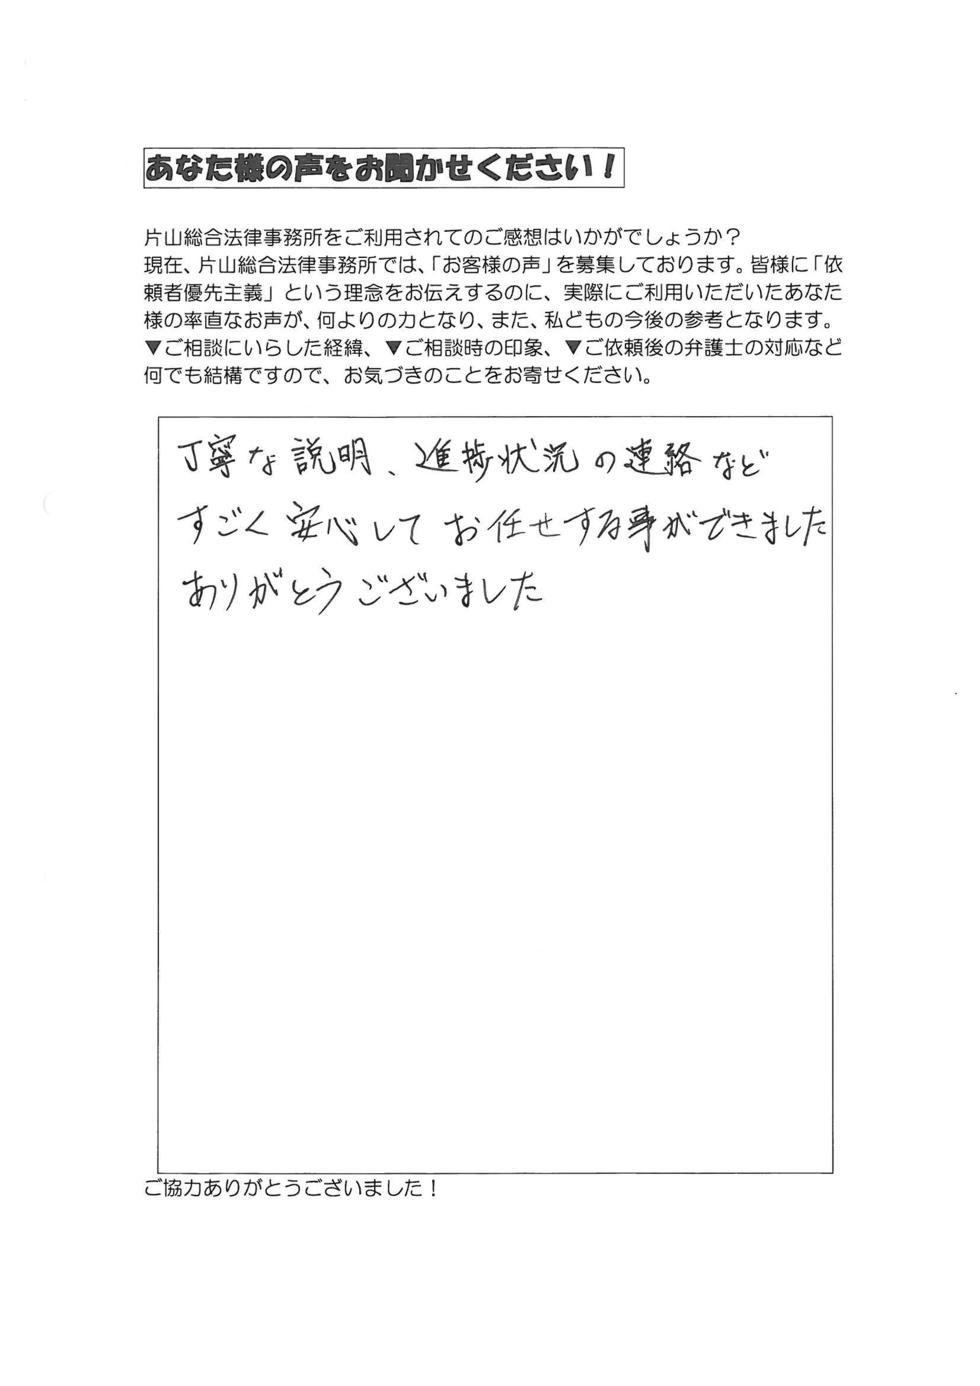 あなた様の声をお聞かせください！
片山総合法律事務所をご利用されてのご感想はいかがでしょうか？
現在、片山総合法律事務所では、「お客様の声」を募集しております。皆様に「依
頼者優先主義」という理念をお伝えするのに、実際にご利用いただいたあなた
様の率直なお声が、何よりの力となり、また、私どもの今後の参考となります。
▼ご相談にいらした経緯、▼ご相談時の印象、▼ご依頼後の弁護士の対応など
何でも結構ですので、お気づきのことをお寄せください。
丁寧な説明、進捗状況の連絡など
すごく安心してお任せする事ができました
ありがとうございました
ご協力ありがとうございました！